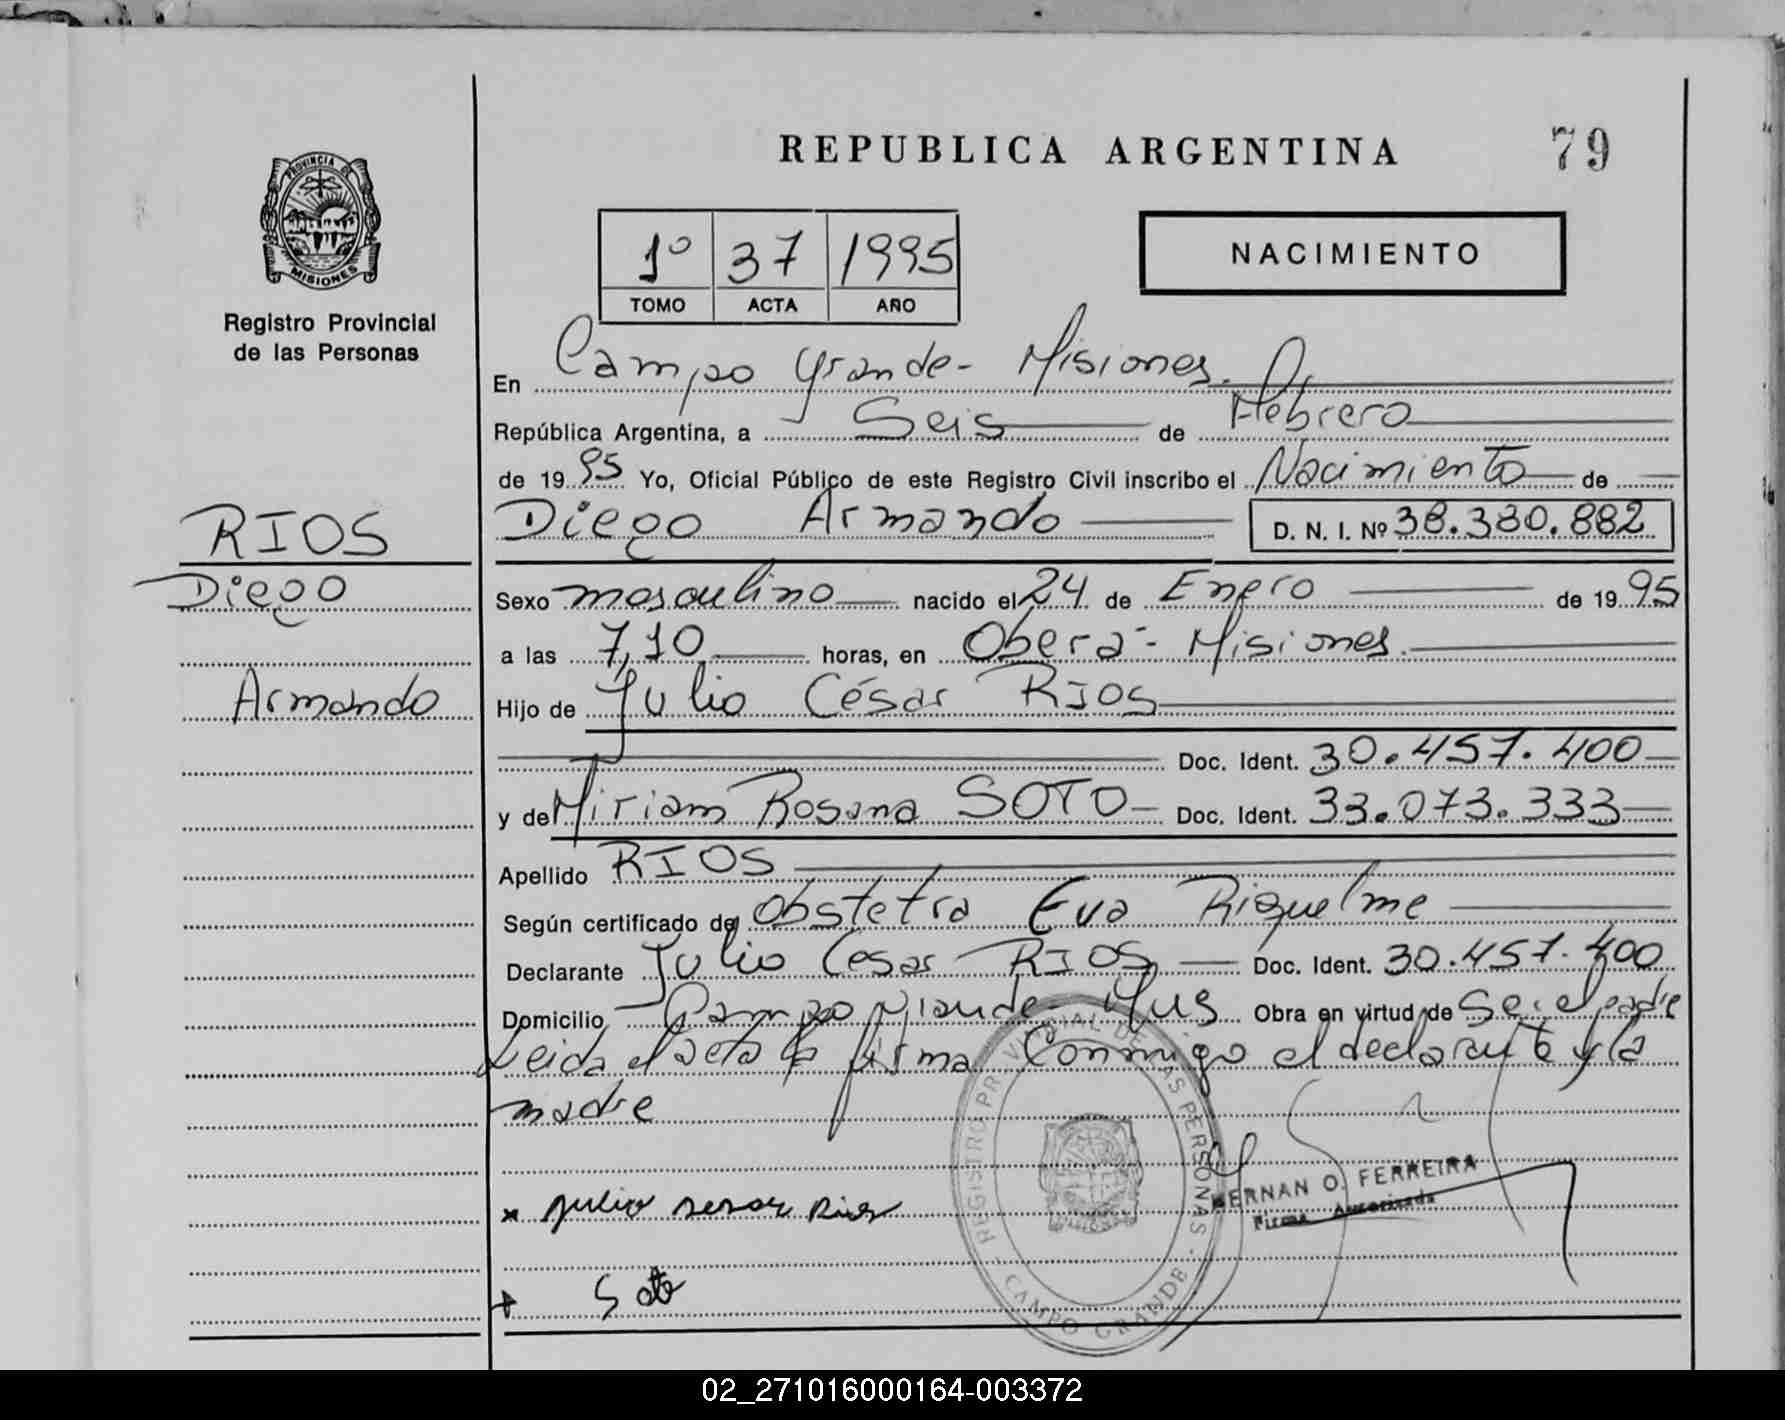 REPUBLICA ARGENTINA
79
PROVINCIA DE
MISIONES
Registro Provincial
de las Personas
1º 37 1995
TOMO ACTA AÑO
NACIMIENTO
En Campo Grande- Misiones.
República Argentina, a Seis de Febrero
de 1995 Yo, Oficial Público de este Registro Civil inscribo el Nacimiento de
RIOS
Diego
Armando
Diego Armando D. N. I. Nº 38.380.882
Sexo masculino nacido el 24 de Enero de 1995
a las 7,10 horas, en Oberá - Misiones.
Hijo de Julio César RIOS
Doc. Ident. 30.457.400
y de Miriam Rosana SOTO Doc. Ident. 33.073.333
Apellido RIOS
Según certificado de obstetra Eva Riquelme
Declarante Julio Cesar RIOS Doc. Ident. 30.457.400
Domicilio Campo Grande Mns Obra en virtud de Ser el padre
Leida el acta la firma Conmigo el declarante y la
madre
REGISTRO PROVINCIAL DE LAS PERSONAS - CAMPO GRANDE -
MISIONES
HERNAN O. FERREIRA
Firma Autorizada
x julio sesar Rios
+ Soto
02_271016000164-003372